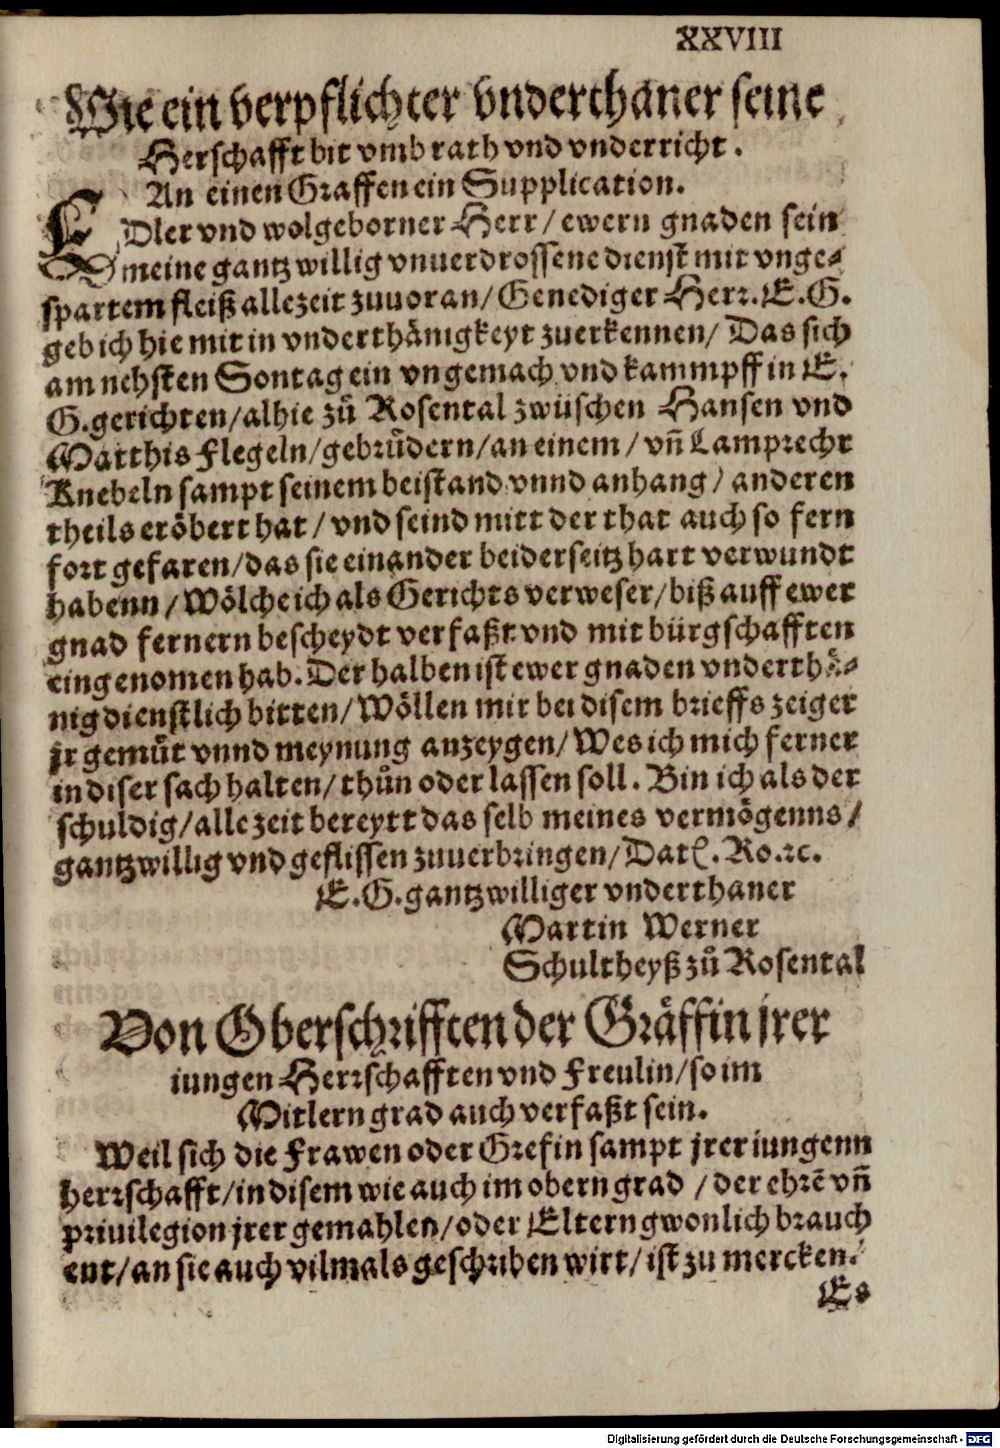 XXVIII
Wie ein verpflichter vnderthaner seine
Herschafft bit vmb rath vnd vnderricht.
An einen Graffen ein Supplication.
EDler vnd wolgeborner Herr/ ewern gnaden sein
meine gantz willig vnuerdrossene dienst mit vnge-
spartem fleiß allezeit zuuoran/ Genediger Herr. E.G.
geb ich hie mit in vnderthånigkeyt zuerkennen/ Das sich
am nehsten Sontag ein vngemach vnd kammpff in E.
G. gerichten/ alhie zů Rosental zwüschen Hansen vnd
Matthis Flegeln/ gebrůdern/ an einem/ vñ Lamprecht
Knebeln sampt seinem beistand vnnd anhang/ anderen
theils eröbert hat/ vnd seind mitt der that auch so fern
fort gefaren/ das sie einander beiderseitz hart verwundt
habenn/ Wölche ich als Gerichts verweser/ biß auff ewer
gnad fernern bescheydt verfaßt vnd mit bürgschafften
eingenomen hab. Der halben ist ewer gnaden vnderthå-
nig dienstlich bitten/ Wöllen mir bei disem brieffs zeiger
jr gemůt vnnd meynung anzeygen/ Wes ich mich ferner
in diser sach halten/ thůn oder lassen soll. Bin ich als der
schuldig/ alle zeit bereytt das selb meines vermögenns/
gantzwillig vnd geflissen zuuerbringen/ Datꝭ. Ro.ꝛc.
E.G. gantzwilliger vnderthaner
Martin Werner
Schultheyß zů Rosental
Von Oberschrifften der Gråffin jrer
iungen Herrschafften vnd Freulin/ so im
Mitlern grad auch verfaßt sein.
Weil sich die Frawen oder Grefin sampt jrer iungenn
herrschafft/ in disem wie auch im obern grad/ der ehrẽ vñ
priuilegion jrer gemahlen/ oder Eltern gwonlich brauch
ent/ an sie auch vilmals geschriben wirt/ ist zu mercken.
Es
Digitalisierung gefördert durch die Deutsche Forschungsgemeinschaft - DFG